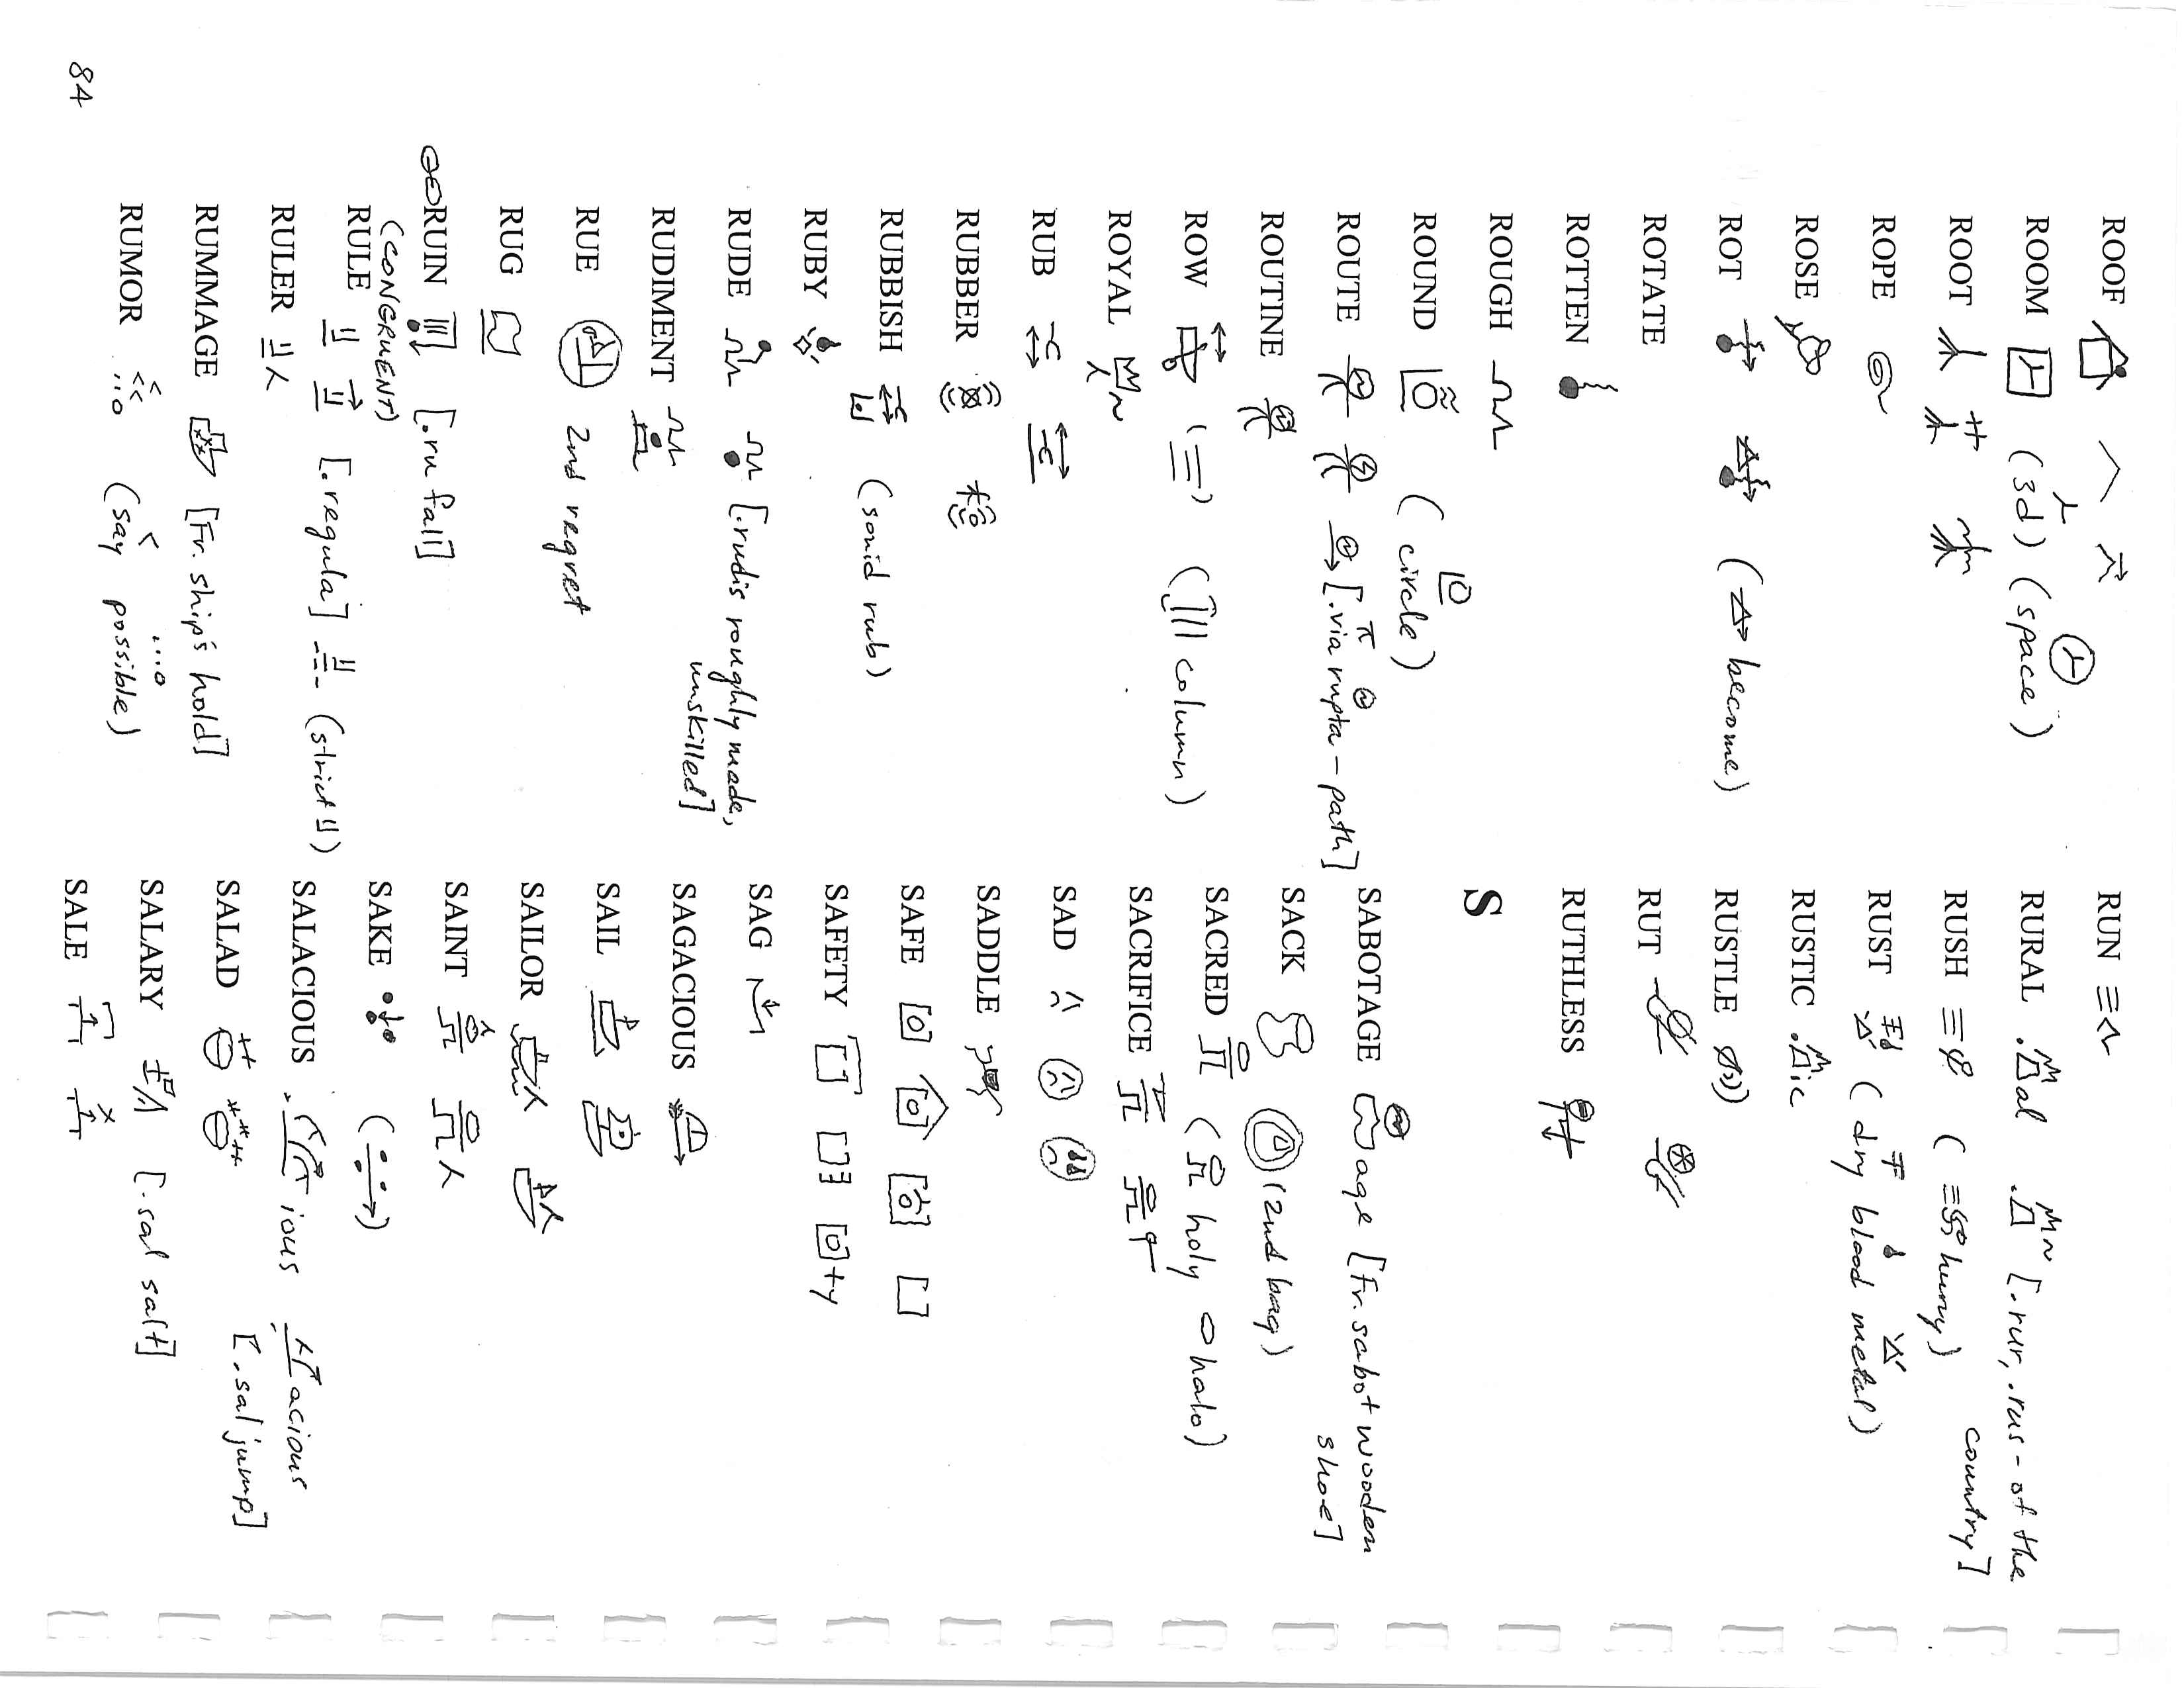 ROOF
ROOM (3d) (space)
ROOT
ROPE
ROSE
ROT (become)
ROTATE
ROTTEN
ROUGH
ROUND (circle)
ROUTE [.via rupta - path]
ROUTINE
ROW (column)
ROYAL
RUB
RUBBER
RUBBISH (sonid rub)
RUBY
RUDE [.rudis roughly made,
unskilled]
RUDIMENT
RUE 2nd regret
RUG
RUIN [.ru fall]
(CONGRUENT)
RULE [.regula] (strict)
RULER
RUMMAGE [Fr. ship's hold]
RUMOR (say possible)
84
RUN
RURAL .al [.rur, .rus - of the
country]
RUSH (hurry)
RUST (dry blood metal)
RUSTIC .ic
RUSTLE
RUT
RUTHLESS
S
SABOTAGE age [Fr. sabot wooden
shoe]
SACK (2nd bag)
SACRED (holy halo)
SACRIFICE
SAD
SADDLE
SAFE
SAFETY ty
SAG
SAGACIOUS
SAIL
SAILOR
SAINT
SAKE
SALACIOUS ious acious
[.sal jump]
SALAD
SALARY [.sal salt]
SALE